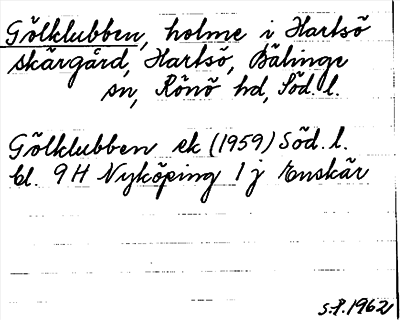 Gölklubben, holme i Hartsö
skärgård, Hartsö, Bälinge
sn, Rönö hd, Söd. l.
Gölklubben ek (1959) Söd. l.
bl. 9H Nyköping 1 j Enskär
S.P. 1962